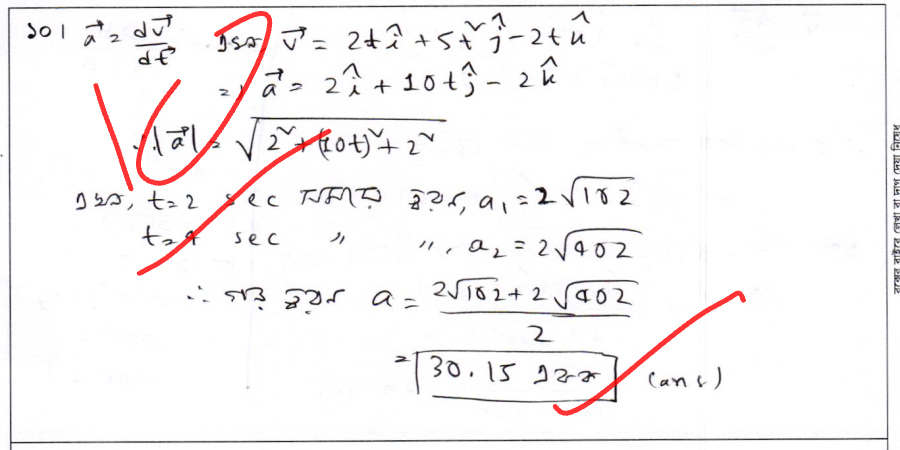 ১০। $\vec{a} = \frac{d\vec{v}}{dt}$ এখন, $\vec{v} = 2t\hat{i} + 5t^2\hat{j} - 2t\hat{k}$
$\Rightarrow \vec{a} = 2\hat{i} + 10t\hat{j} - 2\hat{k}$
$\therefore |\vec{a}| = \sqrt{2^2 + (10t)^2 + 2^2}$
এখন, t=2 sec সময়ে ত্বরণ, $a_1 = 2\sqrt{102}$
t=4 sec " ", $a_2 = 2\sqrt{402}$
$\therefore$ গড় ত্বরণ $a = \frac{2\sqrt{102} + 2\sqrt{402}}{2}$
= 30.15 একক (ans)
বক্সের বাইরে লেখা বা দাগ দেয়া নিষেধ